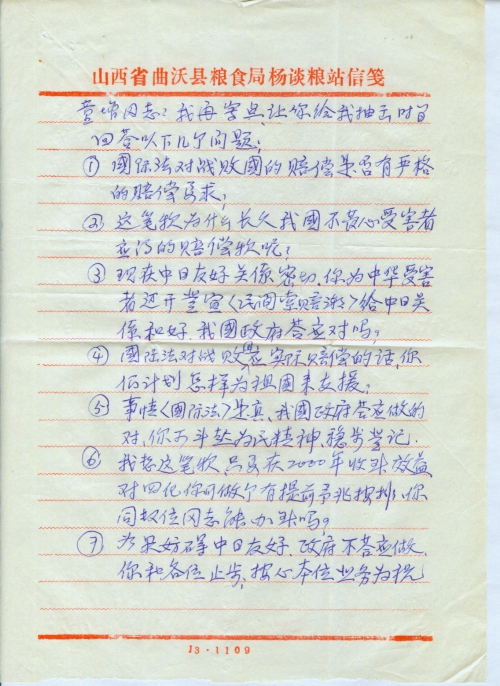 山西省曲沃县粮食局杨谈粮站信笺
童增同志：我再字具，让你给我抽出时间
回答以下几个问题；
① 國际法对战败國的赔偿是否有严格
的赔偿要求；
② 这笔款为什么长久我國不丧心受害者
应得的赔偿款呢；
③ 现在中日友好关係密切，你为中华受害
者迈开 宣《民间索赔潮》给中日关
係和好，我國政府答应对吗；
④ 國际法对战败國在实际赔偿的话，你
们计划怎样为祖國来支援；
⑤ 事情《國际法》是真，我國政府答应做的
对，你 斗 为民精神，稳步登记．
⑥ 我想这笔款，只要在2000年收 效益
对四化你可做个有提前予兆按排，你
同 位同志能办 吗；
⑦ 如果妨碍中日友好，政府不答应做，
你和各位止步，按心本位业务为
J3·1109